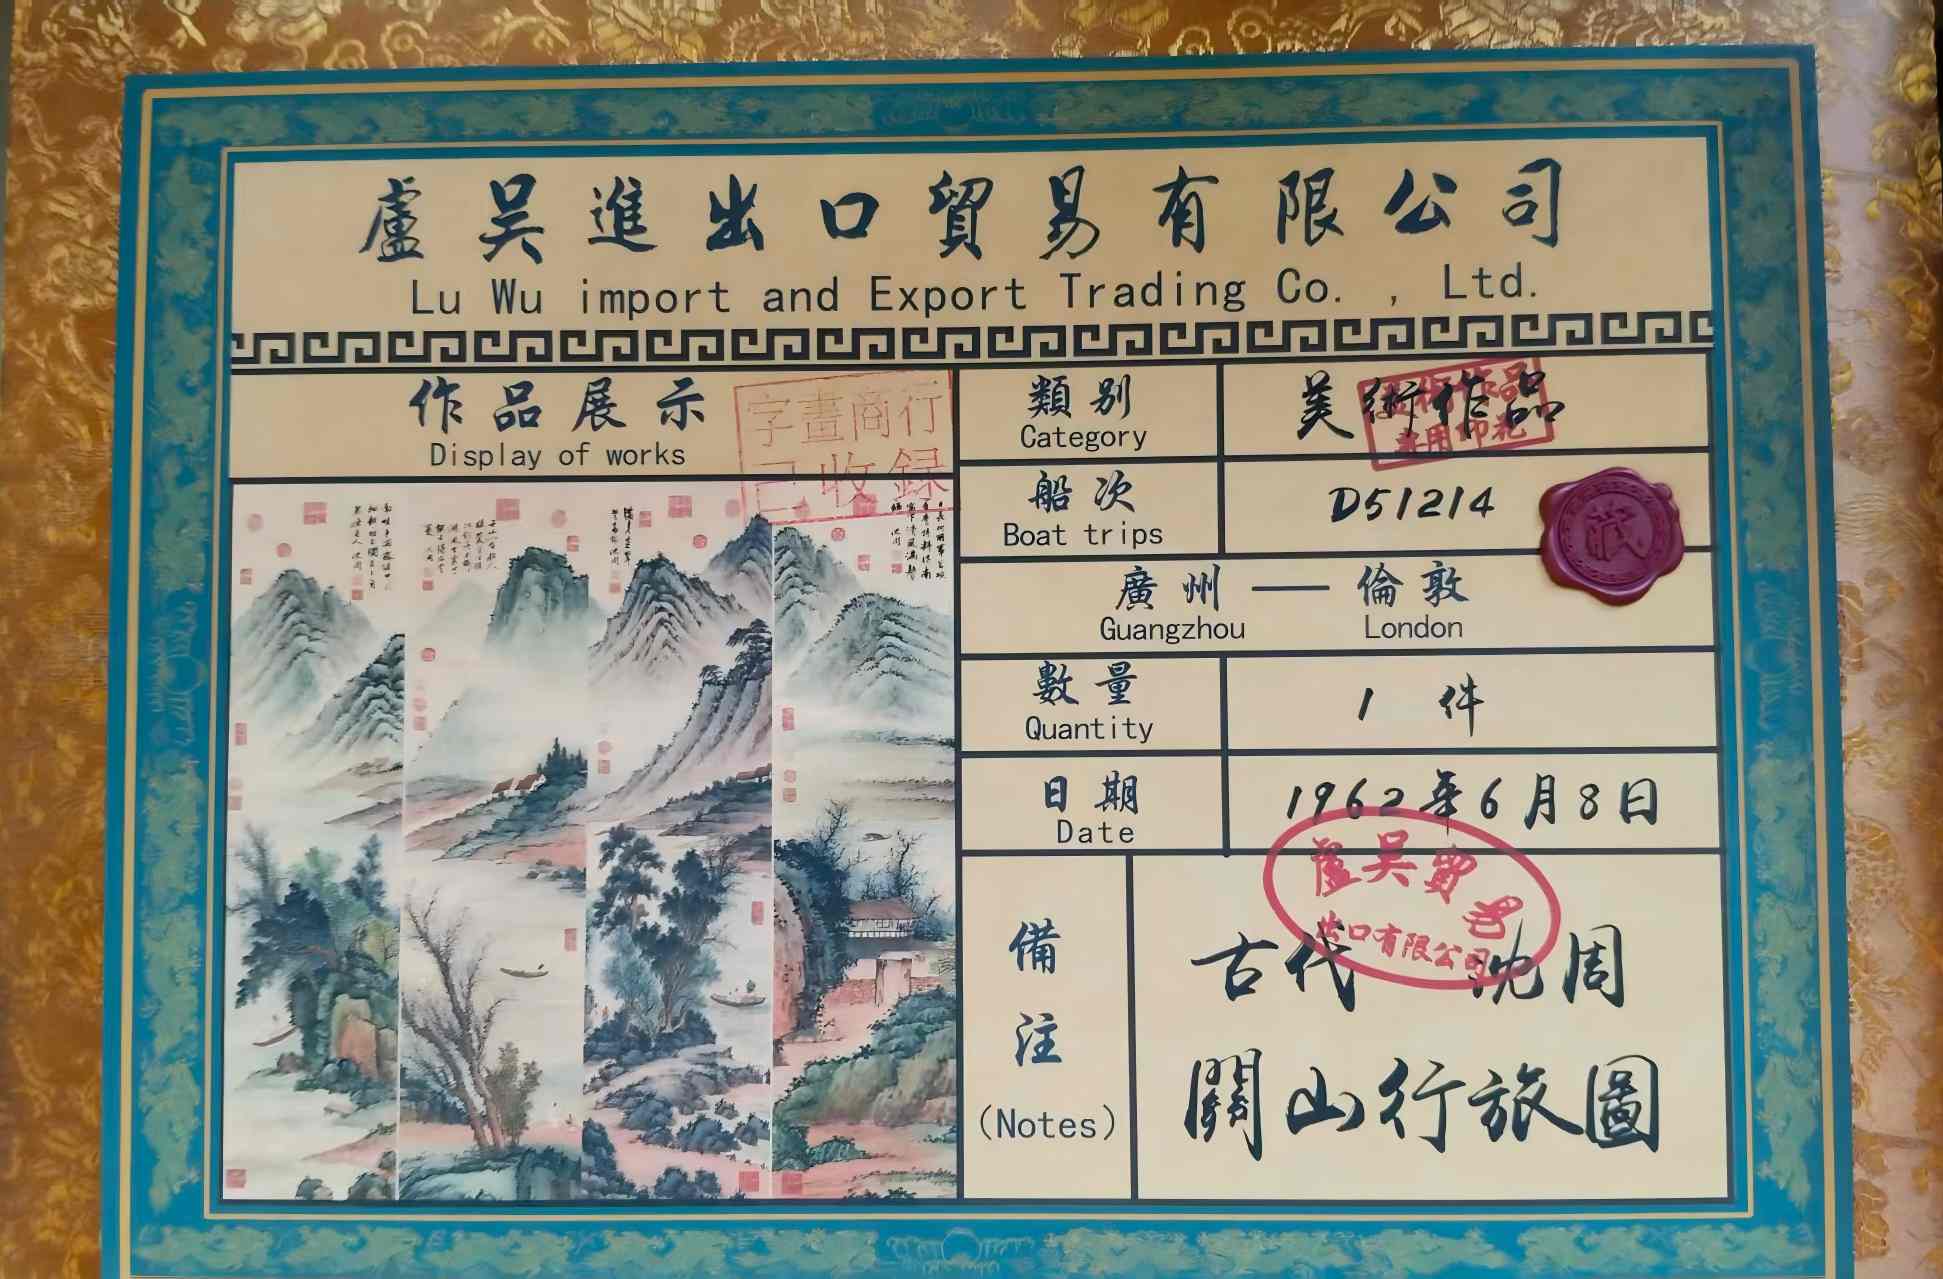 盧吳進出口貿易有限公司
Lu Wu import and Export Trading Co. , Ltd.
作品展示
Display of works
字畫商行
已收録
類别
Category
美術作品
專用印花
船次
Boat trips
D51214
藏
廣州——倫敦
Guangzhou London
數量
Quantity
1 件
日期
Date
1962年6月8日
盧吳貿易
出口有限公司
備注
(Notes)
古代 沈周
關山行旅圖